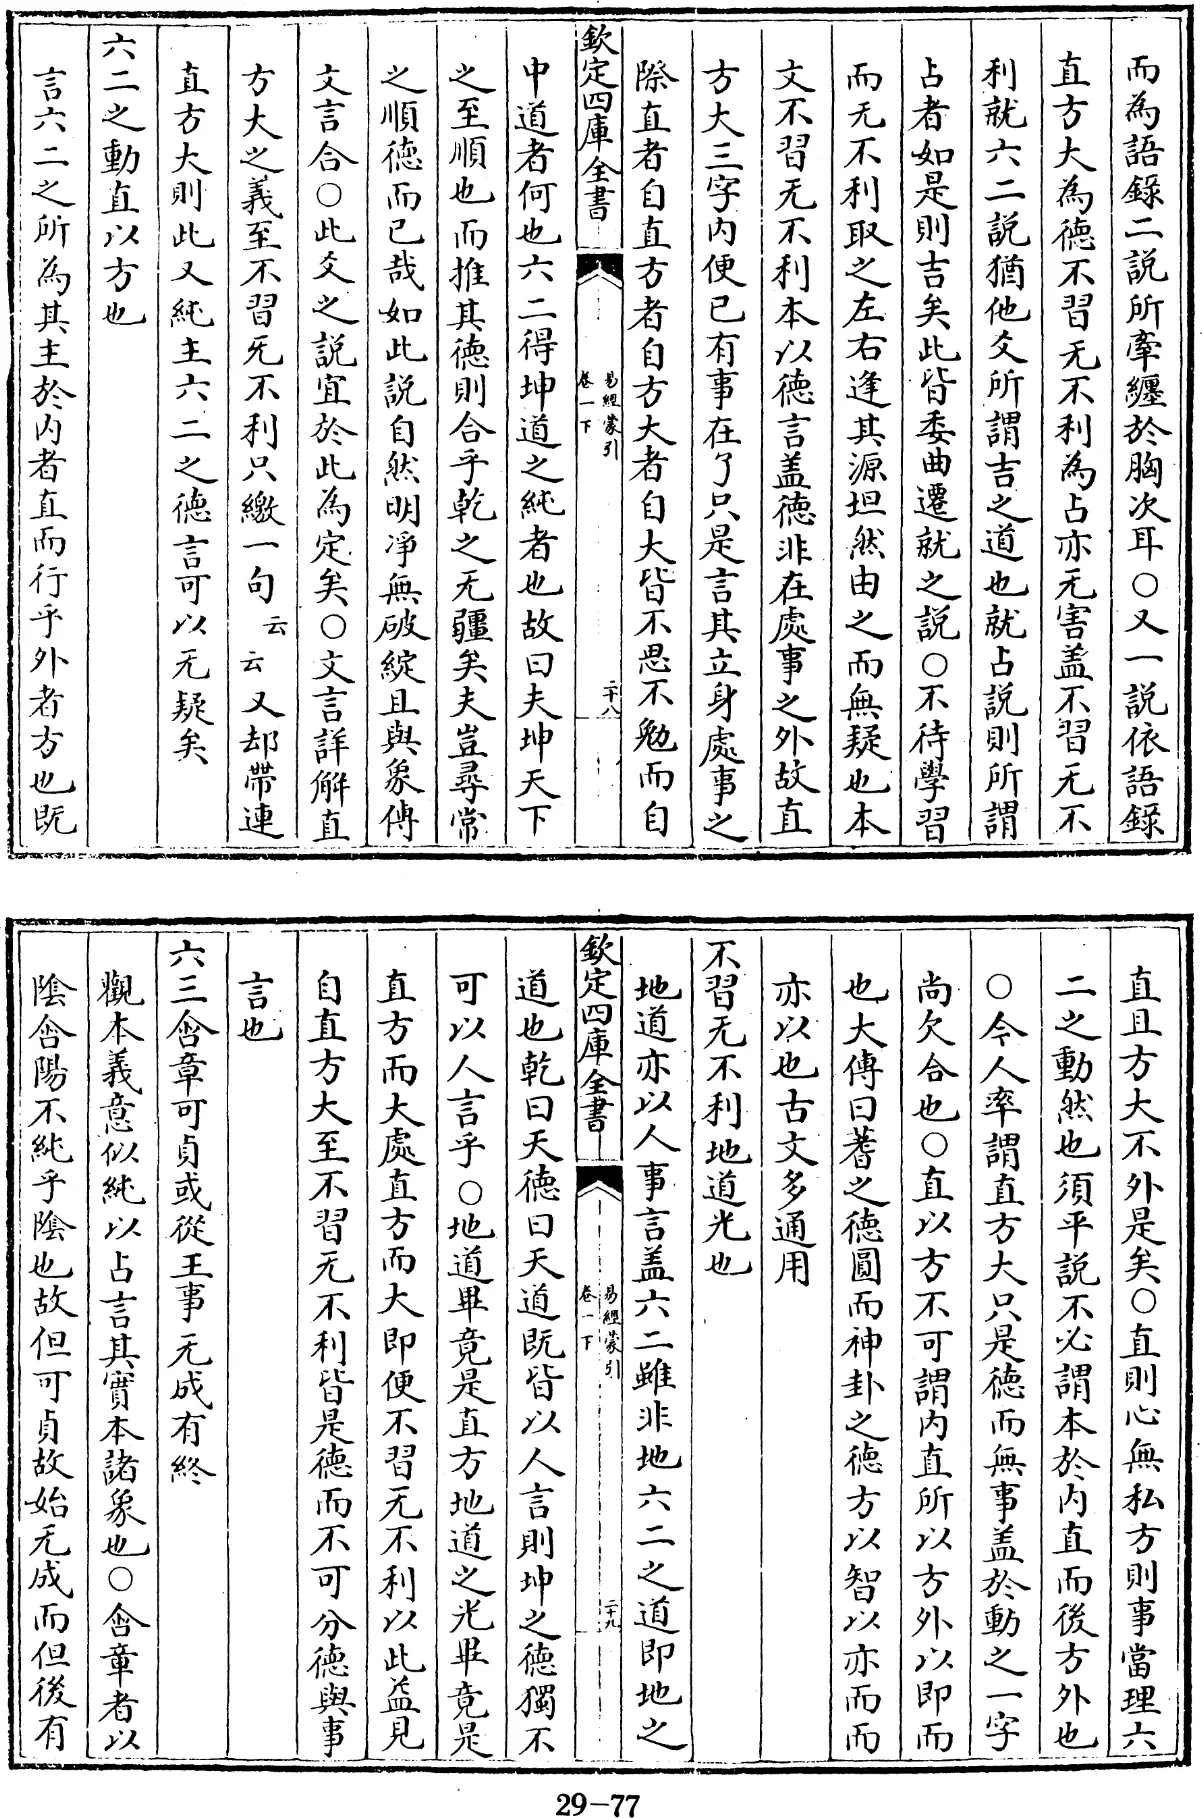 而為語錄二說所牽纏於胸次耳○又一說依語錄
直方大為德不習无不利為占亦无害盖不習无不
利就六二說猶他爻所謂吉之道也就占說則所謂
占者如是則吉矣此皆委曲遷就之說○不待學習
而无不利取之左右逢其源坦然由之而無疑也本
文不習无不利本以德言盖德非在處事之外故直
方大三字内便已有事在了只是言其立身處事之
際直者自直方者自方大者自大皆不思不勉而自
欽定四庫全書
易經蒙引
卷一下
二十八
中道者何也六二得坤道之純者也故曰夫坤天下
之至順也而推其德則合乎乾之无疆矣夫豈尋常
之順德而已哉如此說自然明淨無破綻且與象傳
文言合○此爻之說宜於此為定矣○文言詳解直
方大之義至不習无不利只繳一句云云又却帶連
直方大則此又純主六二之德言可以无疑矣
六二之動直以方也
言六二之所為其主於内者直而行乎外者方也既
直且方大不外是矣○直則心無私方則事當理六
二之動然也須平說不必謂本於内直而後方外也
○今人率謂直方大只是德而無事盖於動之一字
尚欠合也○直以方不可謂内直所以方外以即而
也大傳曰蓍之德圓而神卦之德方以智以亦而而
亦以也古文多通用
不習无不利地道光也
地道亦以人事言盖六二雖非地六二之道即地之
欽定四庫全書
易經蒙引
卷一下
二十九
道也乾曰天德曰天道既皆以人言則坤之德獨不
可以人言乎○地道畢竟是直方地道之光畢竟是
直方而大處直方而大即便不習无不利以此益見
自直方大至不習无不利皆是德而不可分德與事
言也
六三含章可貞或從王事无成有終
觀本義意似純以占言其實本諸象也○含章者以
陰含陽不純乎陰也故但可貞故始无成而但後有
29-77